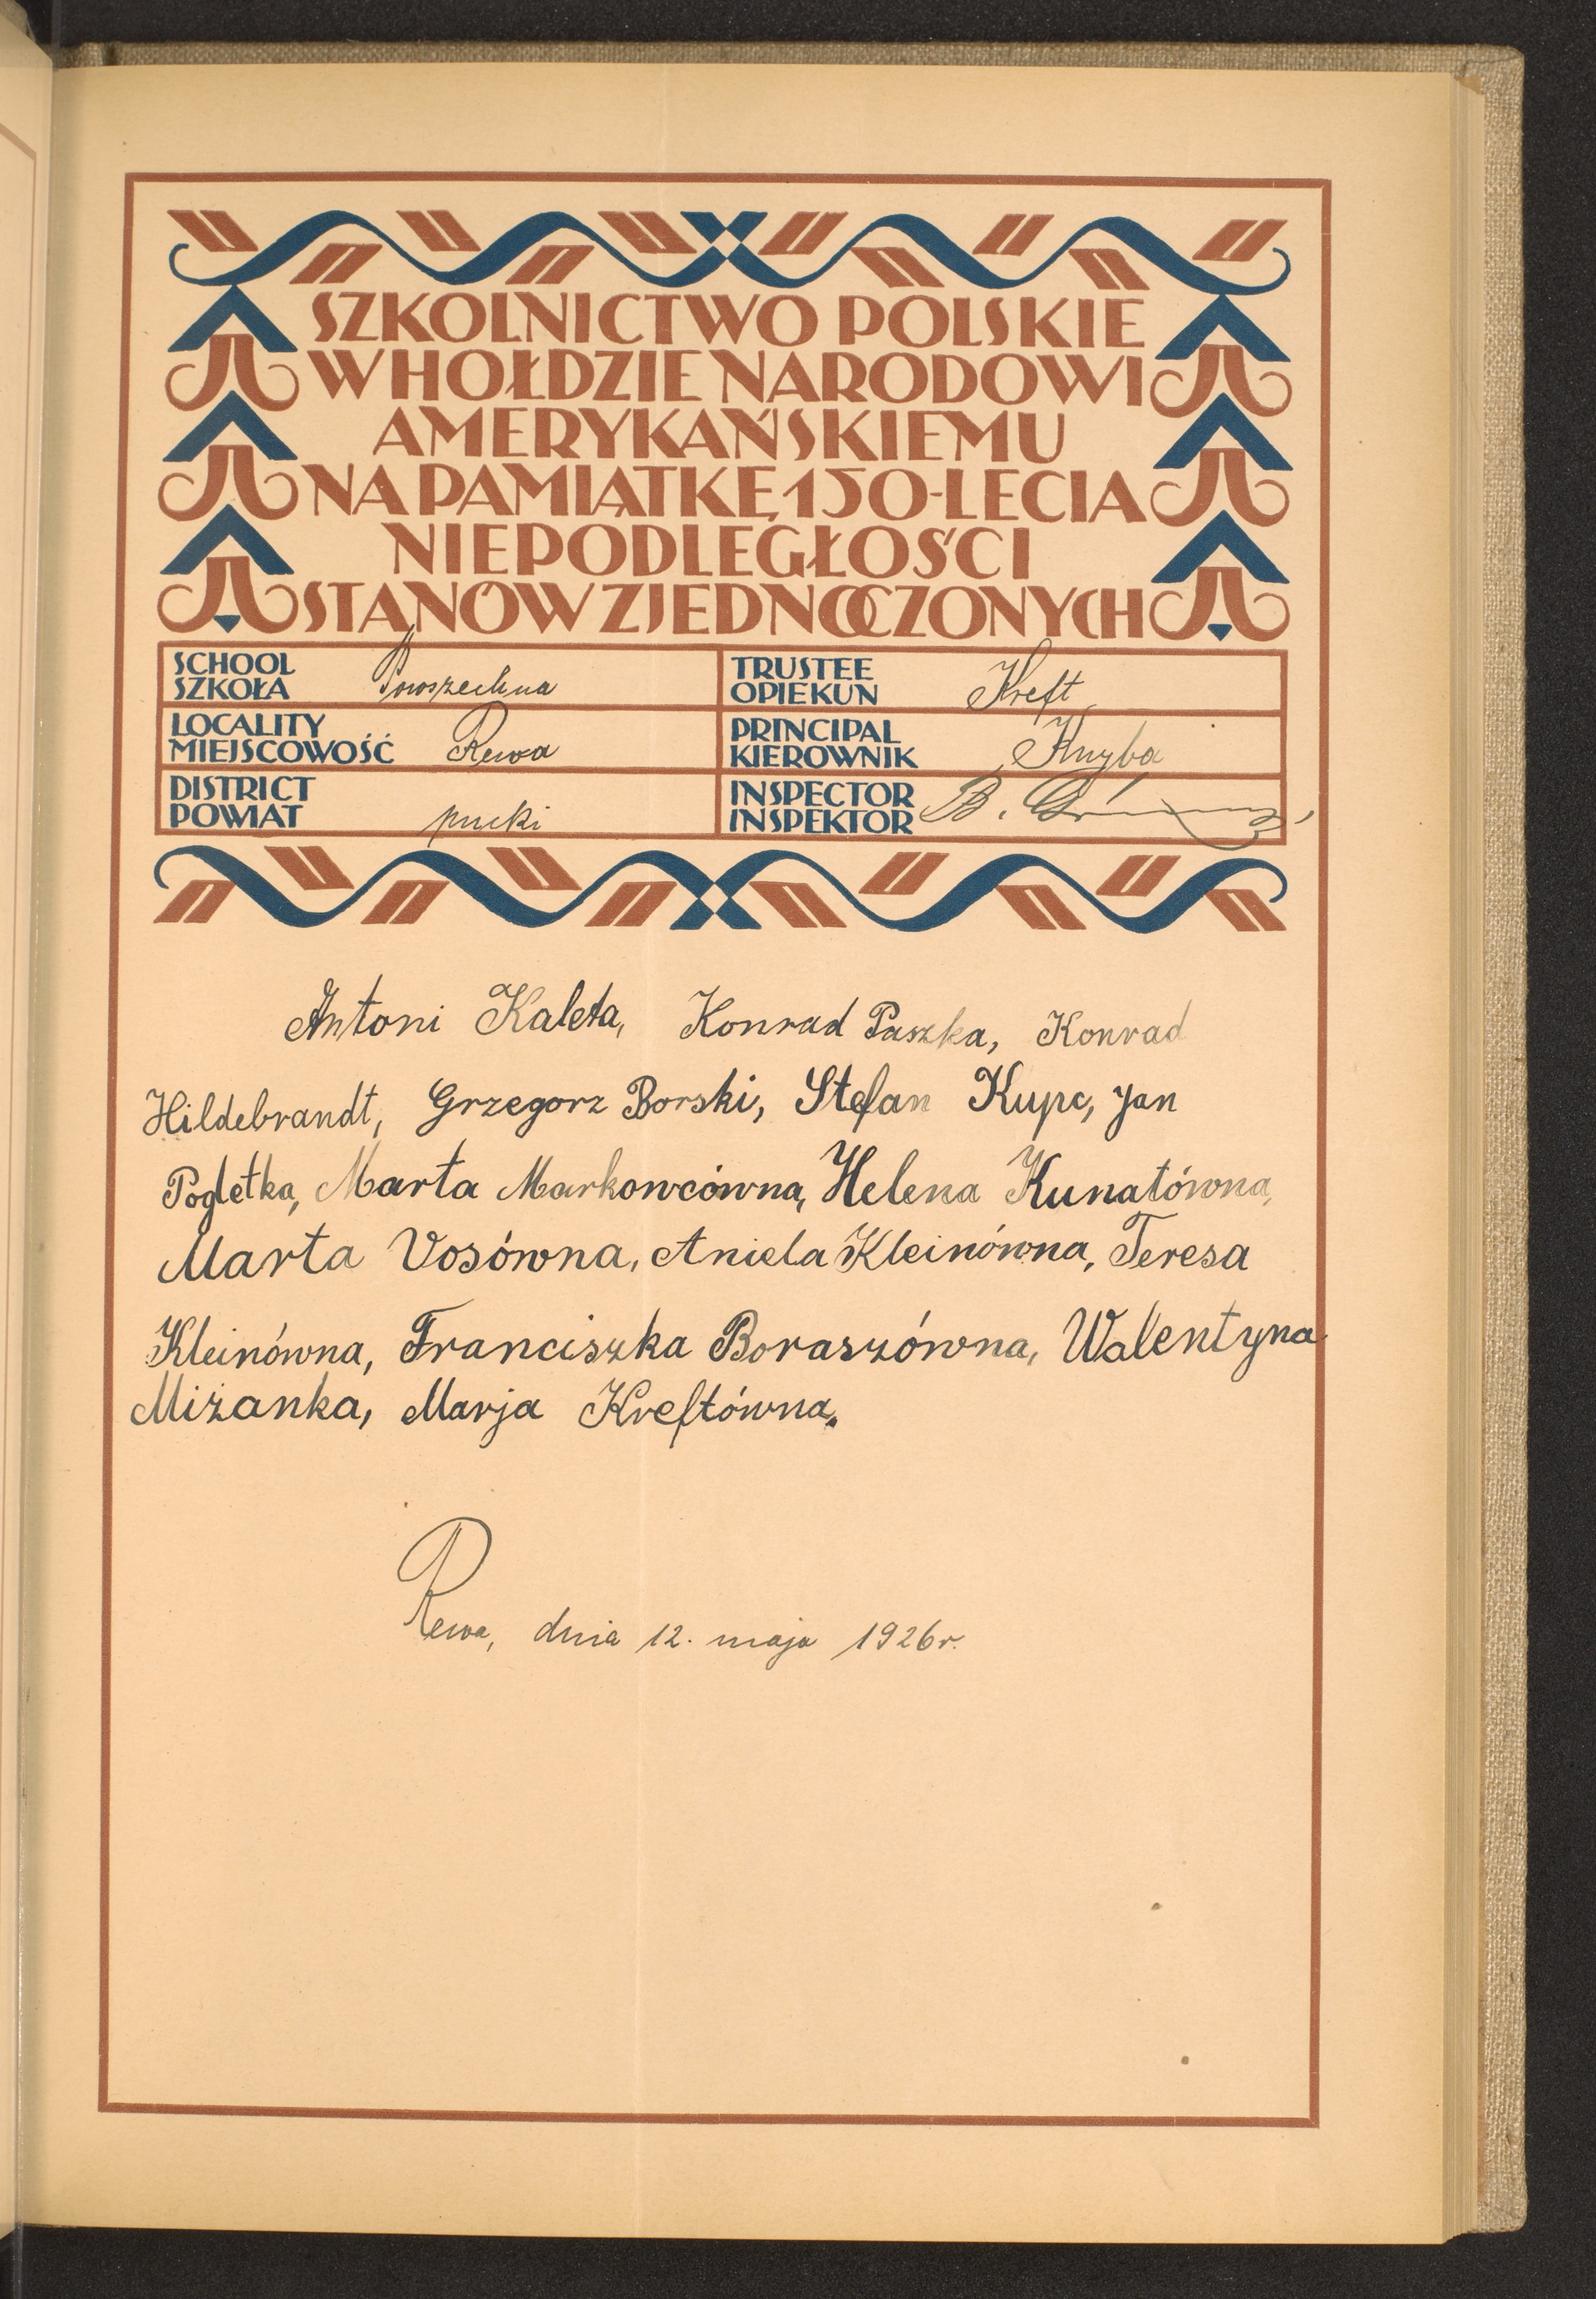 SZKOLNICTWO POLSKIE
W HOŁDZIE NARODOWI
AMERYKAŃSKIEMU
NA PAMIĄTKĘ 150-LECIA
NIEPODLEGŁOŚCI
STANÓW ZJEDNOCZONYCH
SCHOOL
SZKOŁA Powszechna
TRUSTEE
OPIEKUN Kreft
LOCALITY
MIEJSCOWOŚĆ Rewa
PRINCIPAL
KIEROWNIK Knyba
DISTRICT
POWIAT pucki
INSPECTOR
INSPEKTOR B.
Antoni Kaleta, Konrad Paszka, Konrad
Hildebrandt, Grzegorz Borski, Stefan Kupc, Jan
Pogletka, Marta Markowcówna, Helena Kunatówna,
Marta Vosówna, Aniela Kleinówna, Teresa
Kleinówna, Franciszka Boraszówna, Walentyna
Miżanka, Marja Kreftówna.
Rewa, dnia 12. maja 1926r.